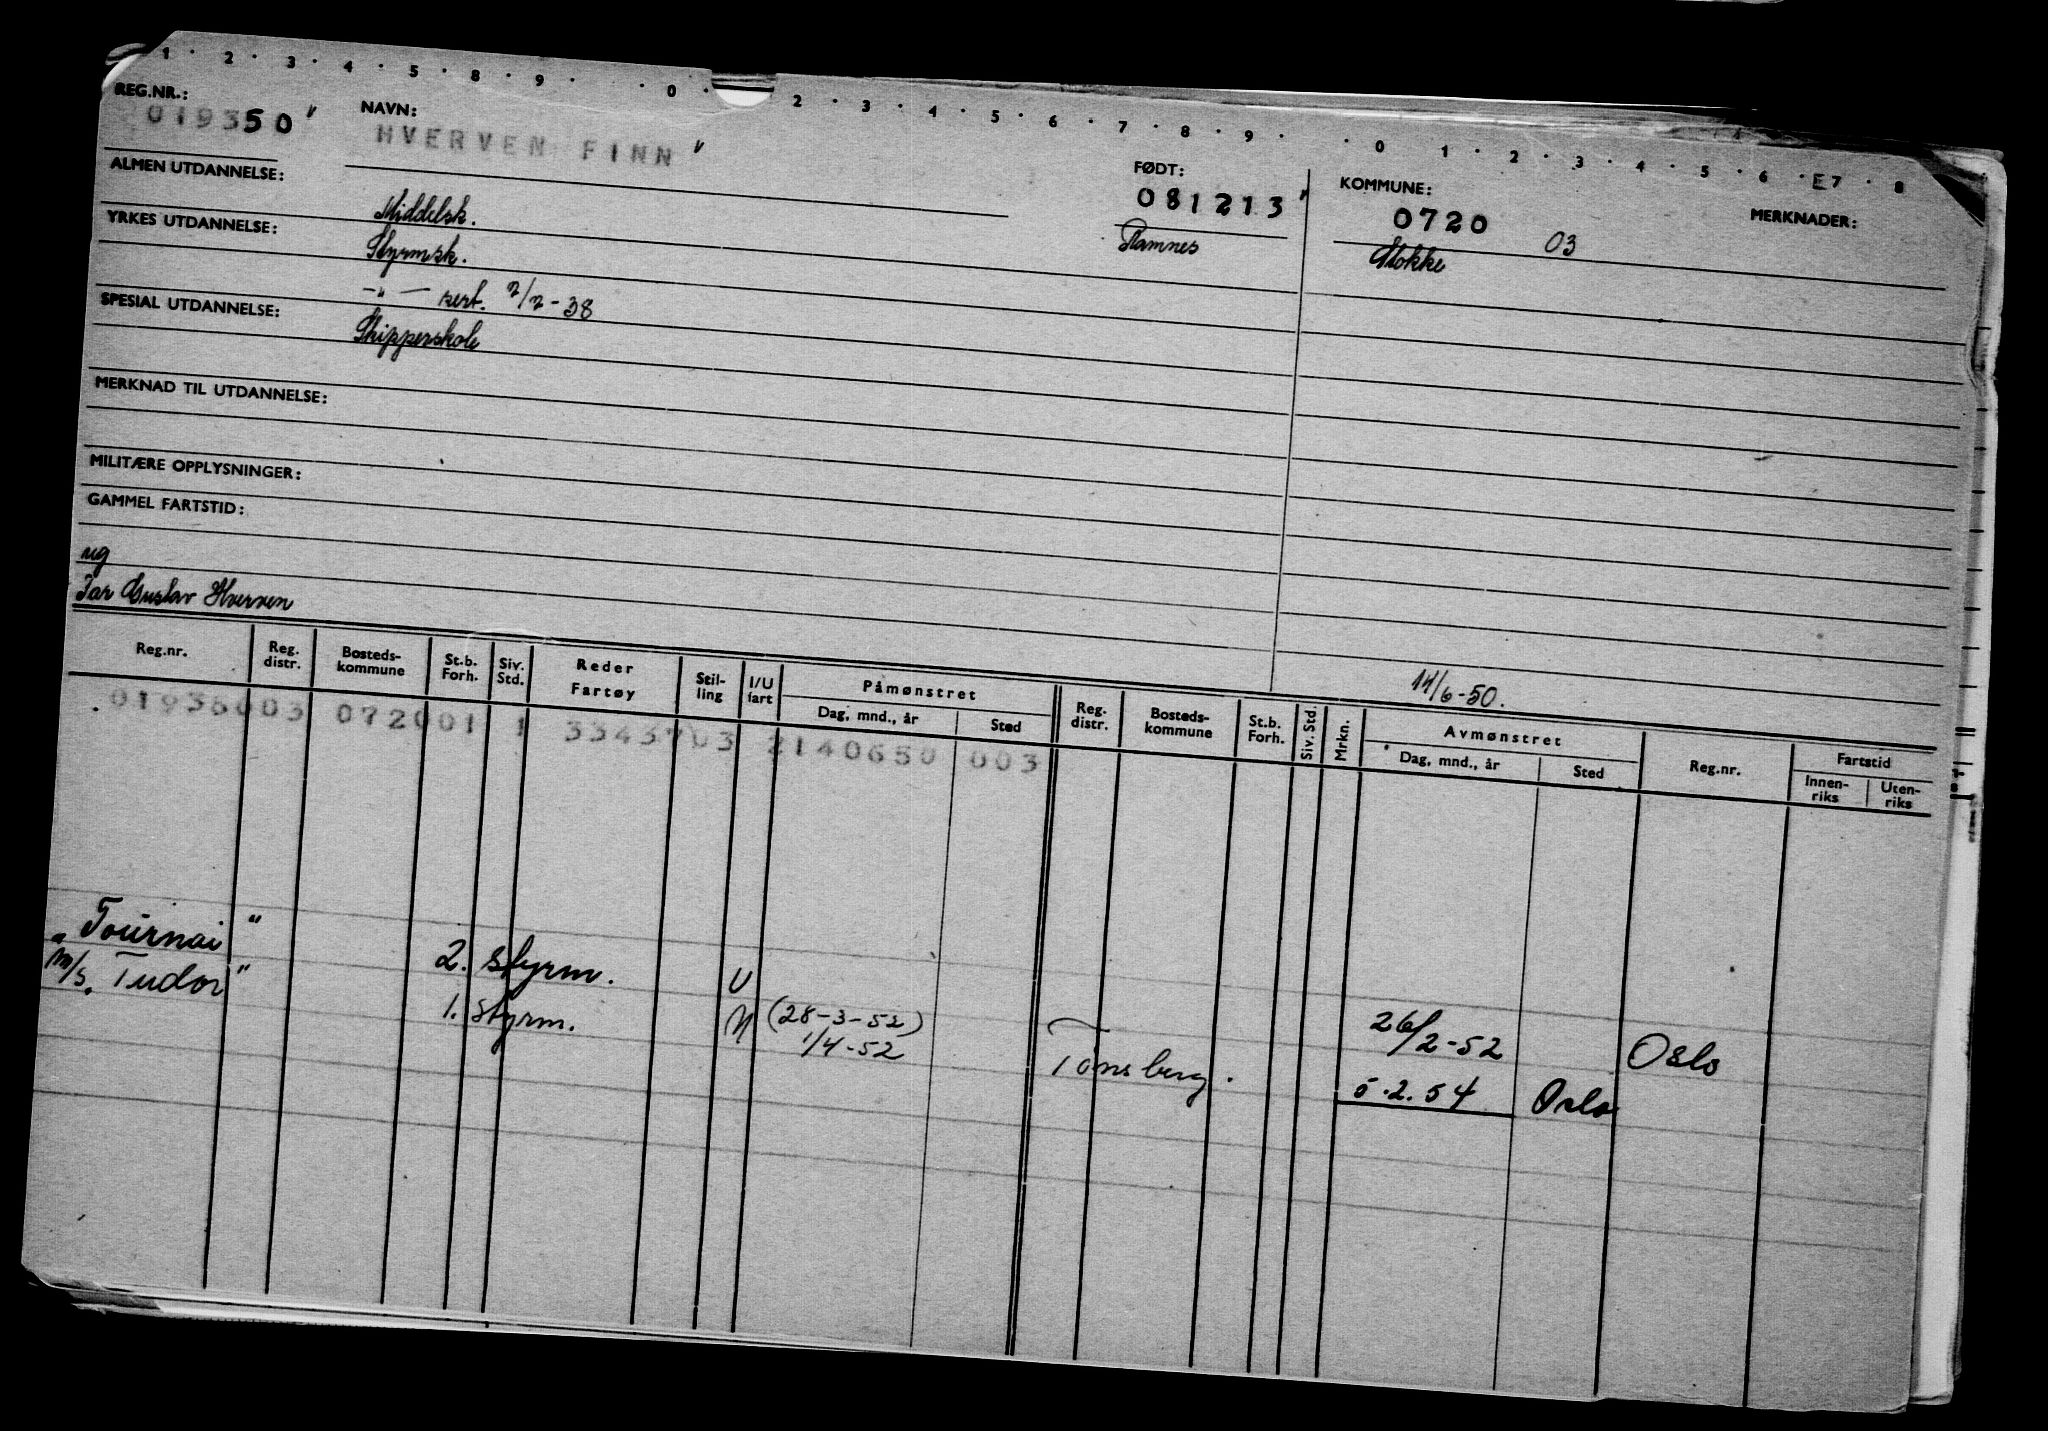 1 · 2 · 3 · 4 · 5 · 8 · 9 · · 0 · 2 · 3 · 4 · 5 · 6 · 7 · 8 · 9 · · 0 1 · 2 · 3 · 4 · 5 · 6 · E7 · 8
REG.NR.: NAVN: FØDT: KOMMUNE: MERKNADER:
019350 HVERVEN FINN 081213 0720 03
ALMEN UTDANNELSE: Middelsk. Ramnes Stokke
YRKES UTDANNELSE: Styrmsk.
-"- sert. 7/7-38
SPESIAL UTDANNELSE: Skipperskole
MERKNAD TIL UTDANNELSE:
MILITÆRE OPPLYSNINGER:
GAMMEL FARTSTID:
ug
Far Gustav Hverven
14/6-50.
Reg.nr. Reg. distr. Bosteds-kommune St.b. Forh. Siv. Std. Reder Fartøy Stil-ling I/U fart Påmønstret Dag, mnd., år Sted Reg. distr. Bosteds-kommune St.b. Forh. Siv. Std. Mrkn. Avmønstret Dag, mnd., år Sted Reg.nr. Fartstid Innen-riks Uten-riks
01935003 072001 1 3343703 2140650 003
"Tournai" 2. styrm. U 26/2-52 Oslo
M/s. "Tudor" 1. styrm. (28-3-52) 1/4-52 Tønsberg. 5.2.54 Oslo